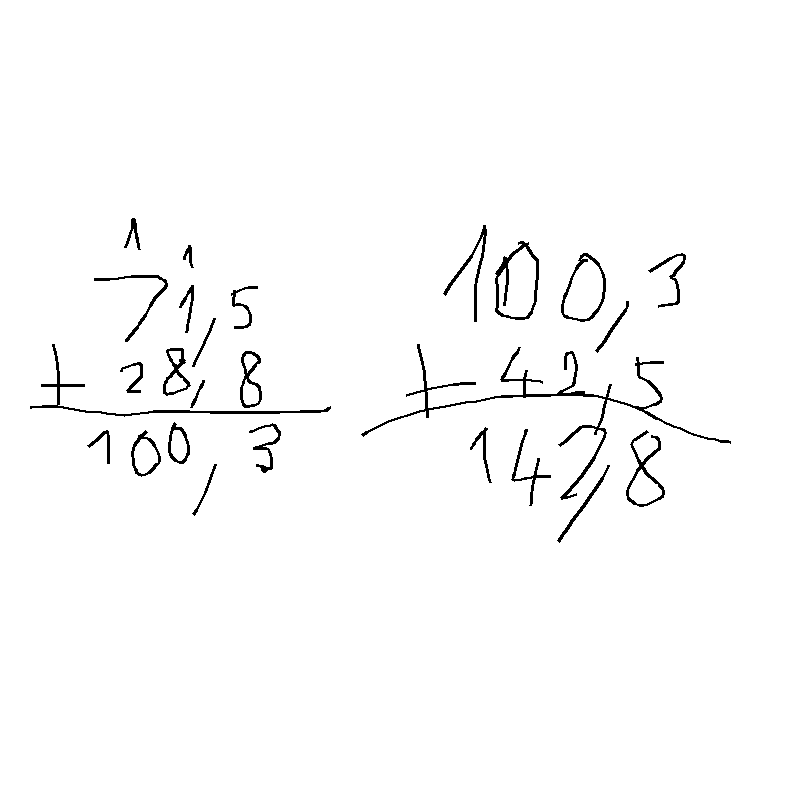 1 1
71,5
+ 28,8
100,3
100,3
+ 42,5
142,8